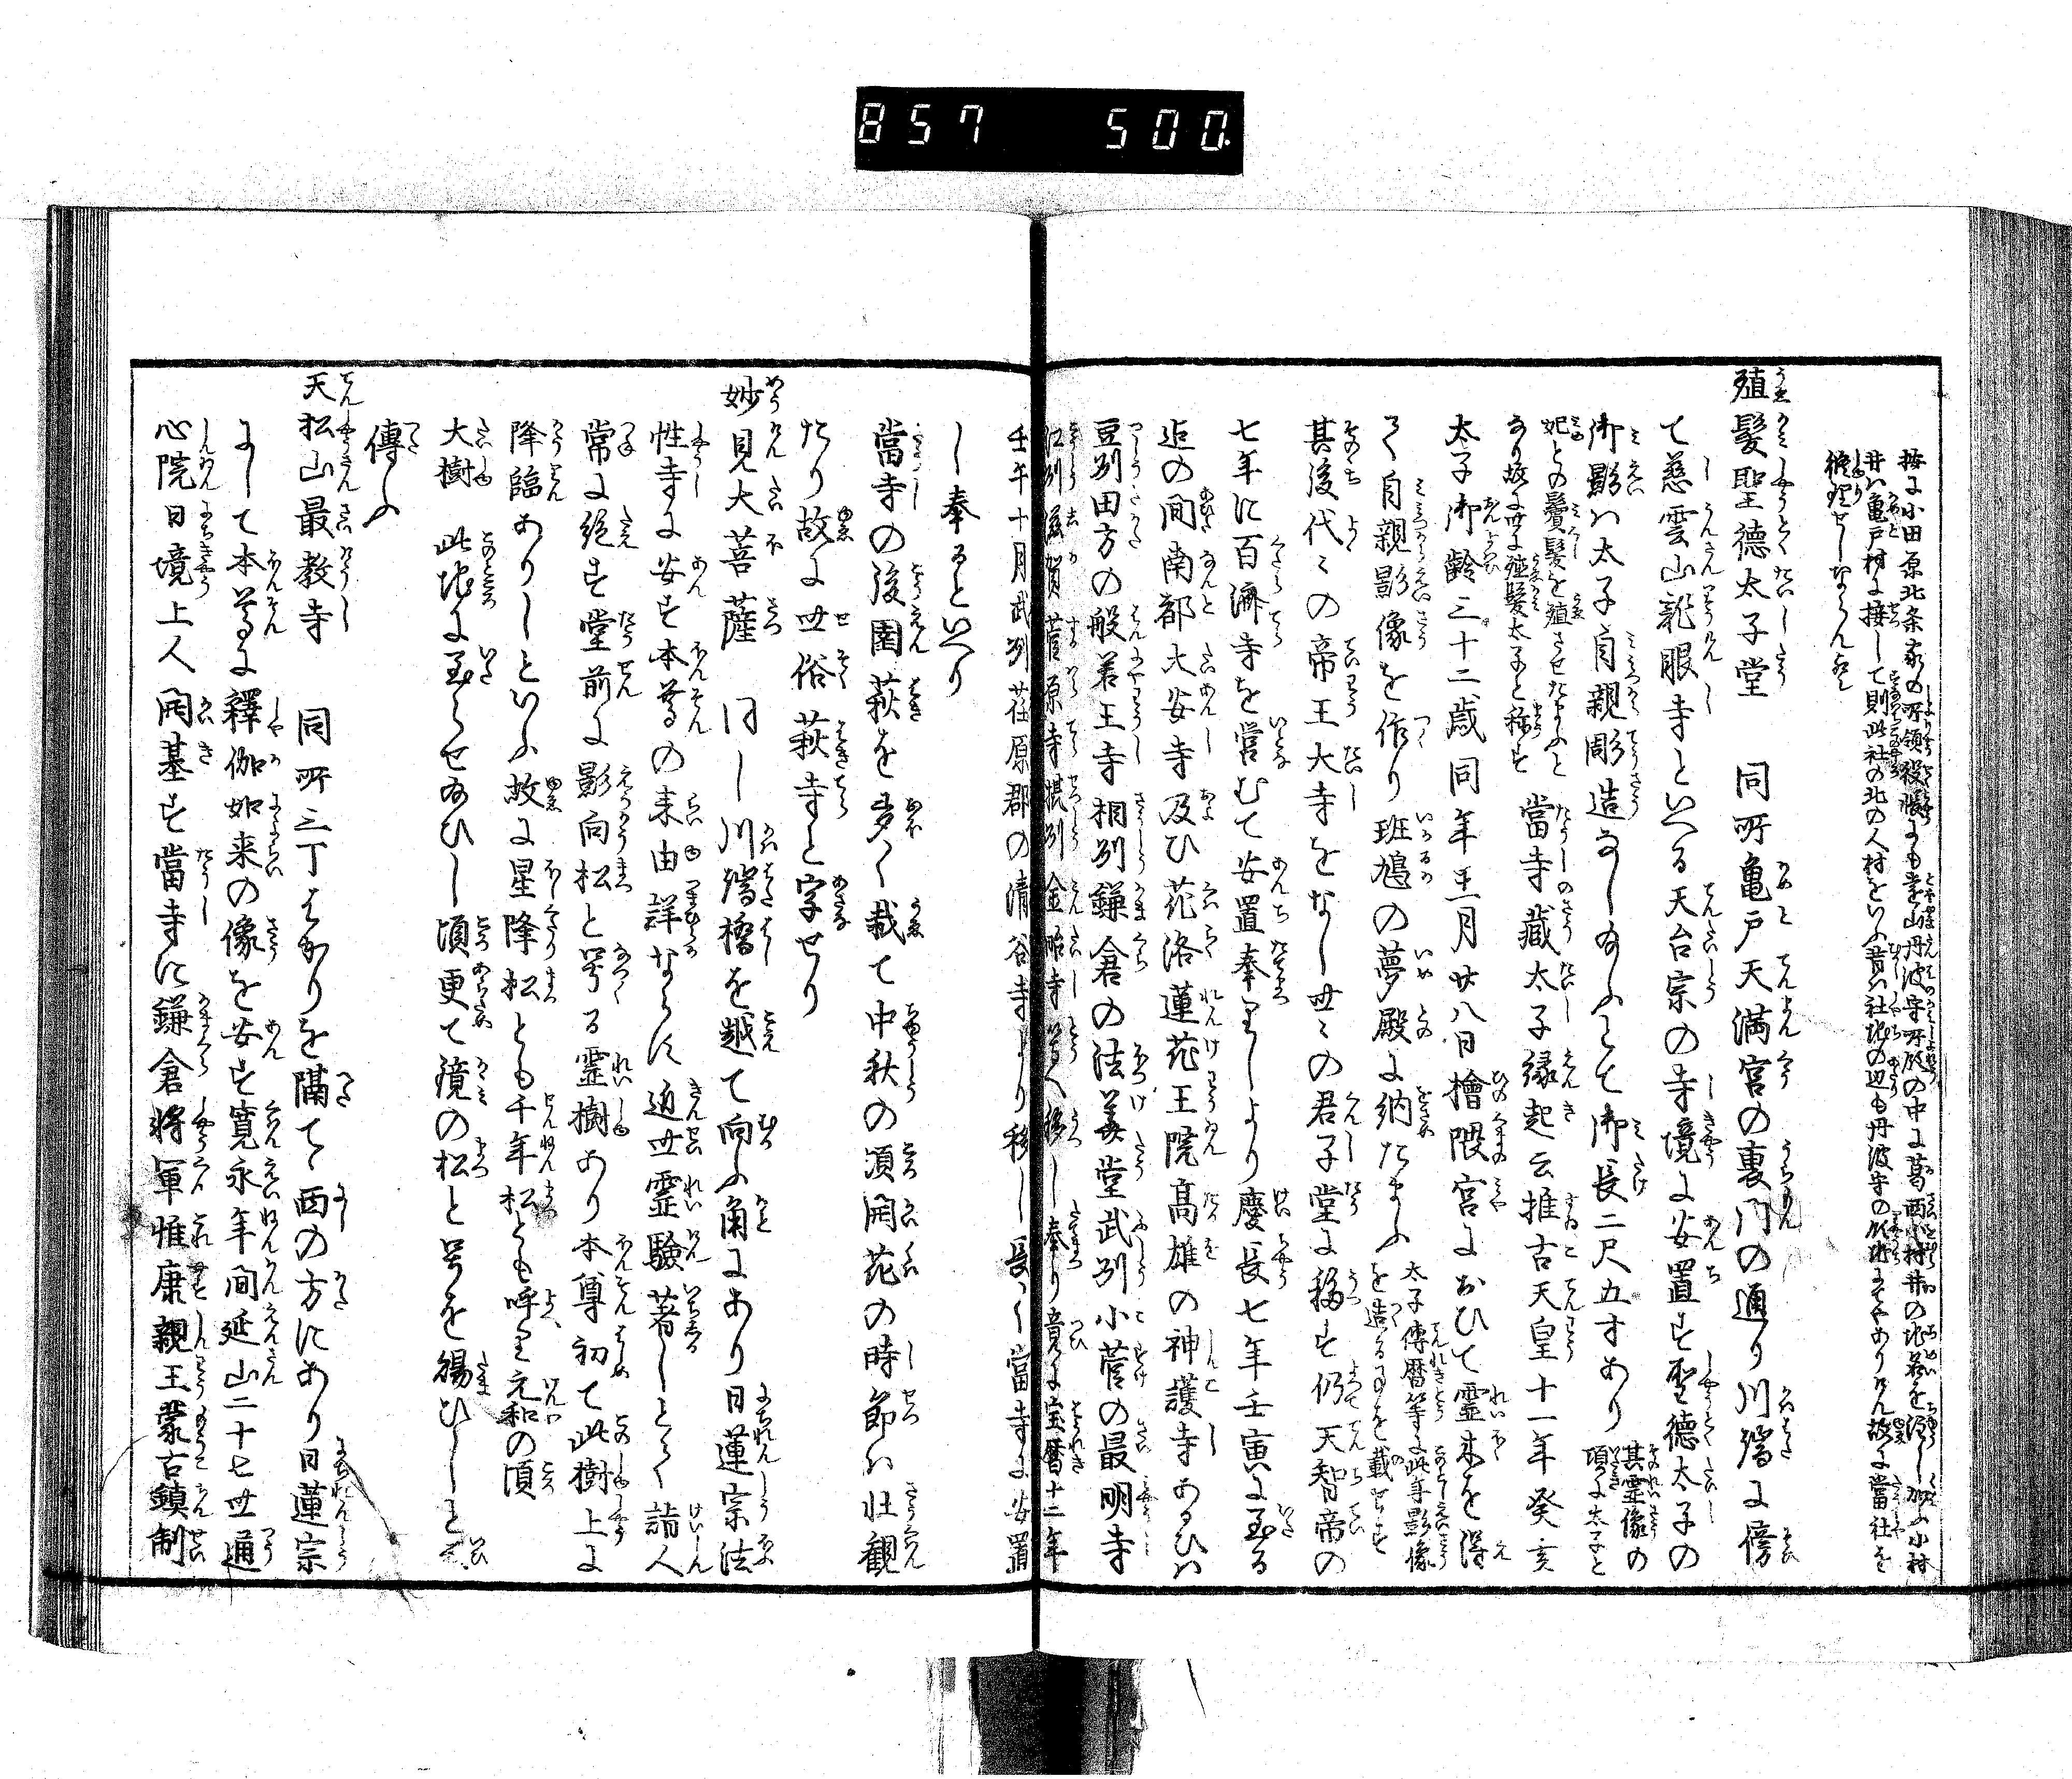 857 500.
按に小田原北条家の所領役帳にも遠山丹波守所領の中に葛西小村井の地名を注し加ふ小村
井は亀戸村に接して則此社の北の人村をいふ昔は社地の辺も丹波守の領地にてやありけん故に當社を
修理せしならん歟
殖髪聖徳太子堂 同所亀戸天満宮の裏門の通り川端に傍
て慈雲山龍眼寺といへる天台宗の寺境に安置す聖徳太子の
御影は太子自親彫造なし給ふとて御長二尺五寸あり其霊像の頂に太子と
妃との鬢髪を殖させたまふとなり故に世に殖髪太子と称す 當寺蔵太子縁起云推古天皇十一年癸亥
太子御齢三十二歳同年三月廿八日檜隈宮におひて霊木を得
て自親影像を作り班鳩の夢殿に納たまふ太子傳暦等に此年影像を造る事を載せす
其後代々の帝王大寺をなし世々の君子堂に移す仍天智帝の
七年に百濟寺を営むて安置奉りしより慶長七年壬寅に至る
迄の間南都大安寺及ひ花洛蓮花王院高雄の神護寺あるひは
豆刕田方の般若王寺相刕鎌倉の法華堂武刕小菅の最明寺
江刕滋賀菅原寺摂刕金胎寺等へ移し奉り竟に宝暦十二年
壬午十月武刕荏原郡の清谷寺より移し長く當寺に安置
し奉るといへり
當寺の後園萩を多く栽て中秋の頃開花の時節は壮観
たり故に世俗萩寺と字せり
妙見大菩薩 同し川端橋を越て向ふ角にあり日蓮宗法
性寺に安す本尊の来由詳ならす近世霊驗著しとて詣人
常に絶す堂前に影向松と号る霊樹あり本尊初て此樹上に
降臨ありしといふ故に星降松とも千年松とも呼り元和の頃
大樹 此地に至らせ給ひし頃更て鏡の松と号を賜ひしと云
傳ふ
天松山最教寺 同所三丁はかりを隔て西の方にあり日蓮宗
にして本尊に釋伽如来の像を安す寛永年間延山二十七世通
心院日境上人開基す當寺に鎌倉将軍惟康親王蒙古鎮制